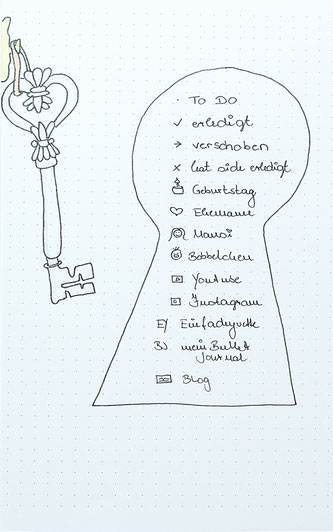 · TO DO
✓ erledigt
→ verschoben
× hat sich erledigt
Geburtstag
♡ Ehemann
Bobbelchen
Youtube
Instagram
EY Einfachyvette
BJ mein Bullet
Journal
Blog